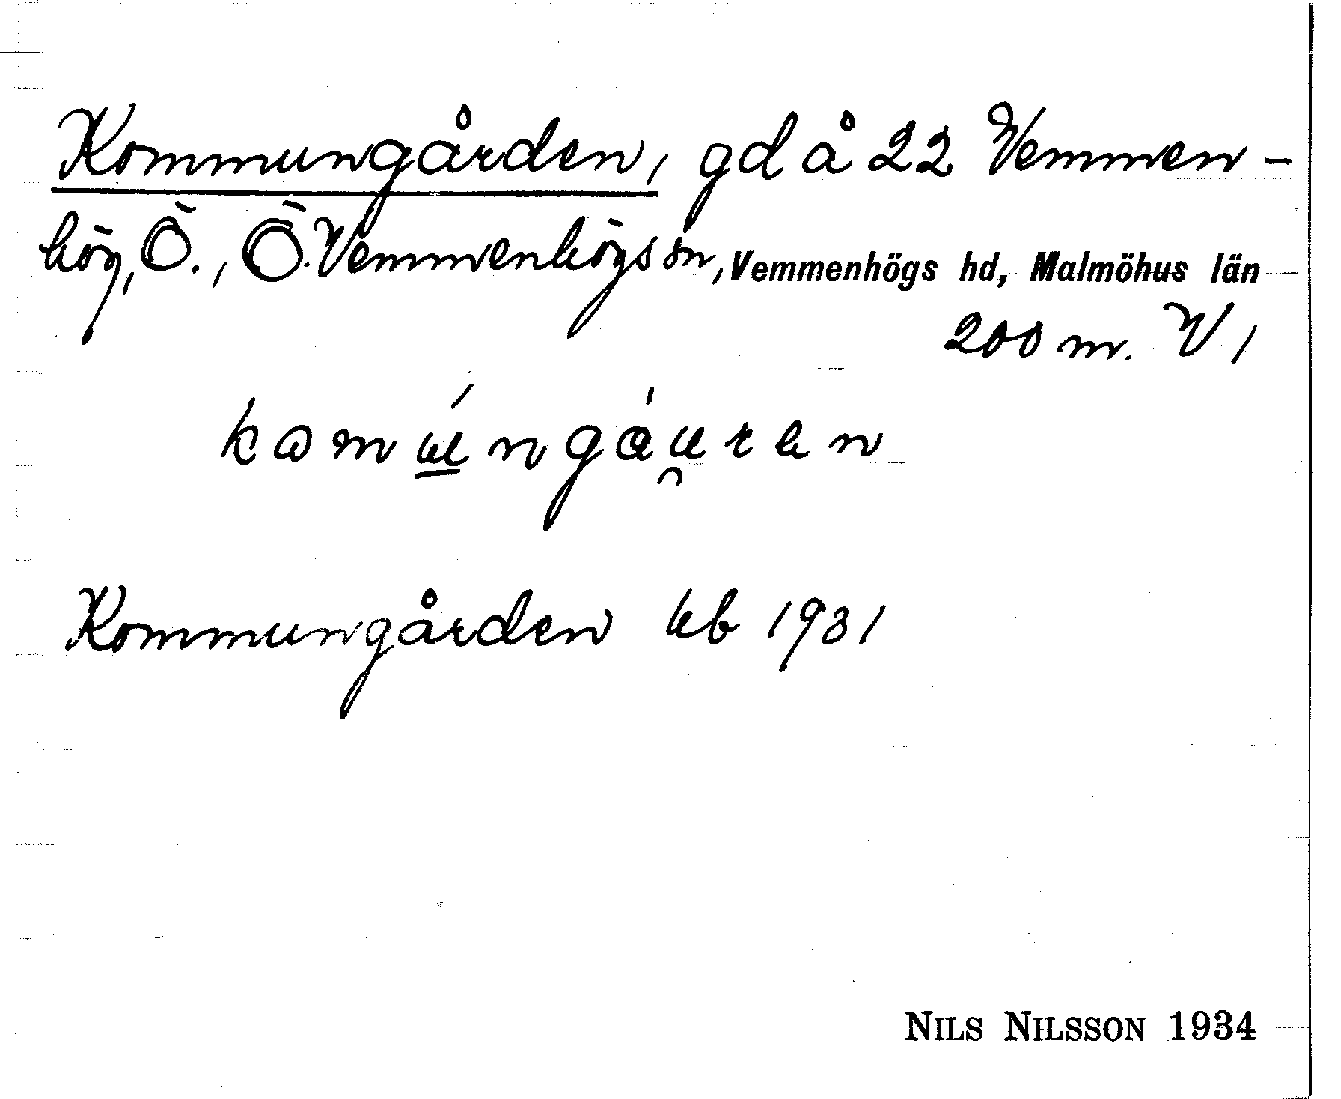 Kommungården, gd å 22 Vemmen-
hög, Ö., Ö. Vemmenhögs sn, Vemmenhögs hd, Malmöhus län
200 m. V /
kɷmúngåu̯ren
Kommungården kb 1931
NILS NILSSON 1934